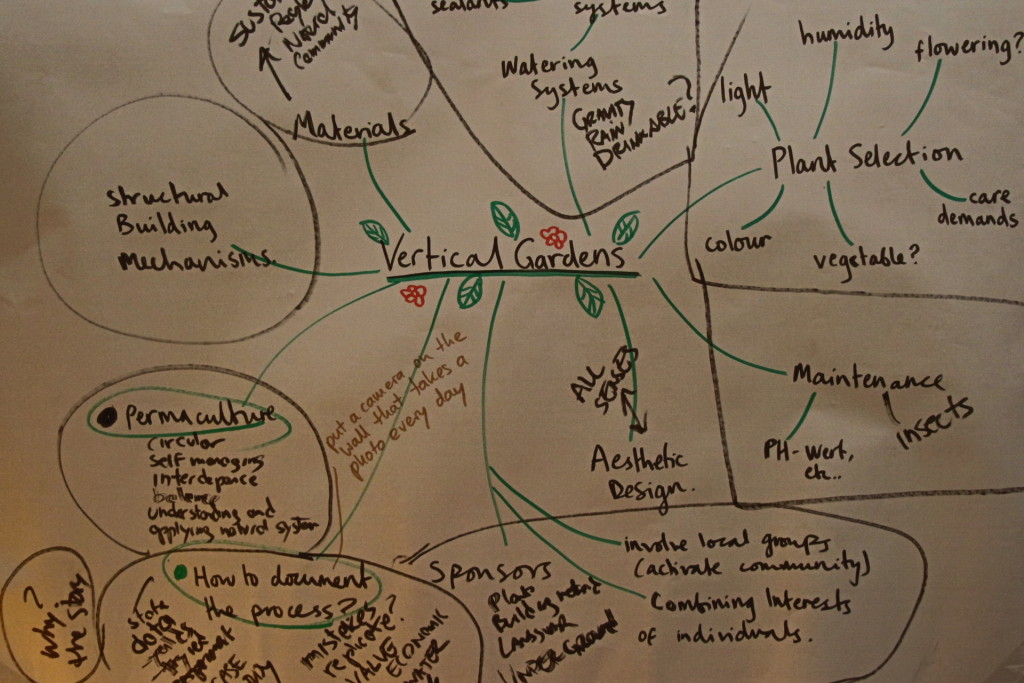 sealants
systems
People
Natural
Community
Materials
Watering
Systems
GRAVITY
RAIN
DRINKABLE?
humidity
flowering?
light
Plant Selection
care
demands
colour
vegetable?
Structural
Building
Mechanisms.
Vertical Gardens
put a camera on the
wall that takes a
photo every day
ALL
SENSES
Aesthetic
Design.
Maintenance
insects
PH-Wert,
etc..
Permaculture
circular
self managing
understanding and
applying natural system
How to document
the process?
why?
the story
state
mistakes?
replicate?
VALUE
ECONOMIC
WATER
SPONSORS
UNDERGROUND
involve local groups
(activate community)
Combining Interests
of individuals.